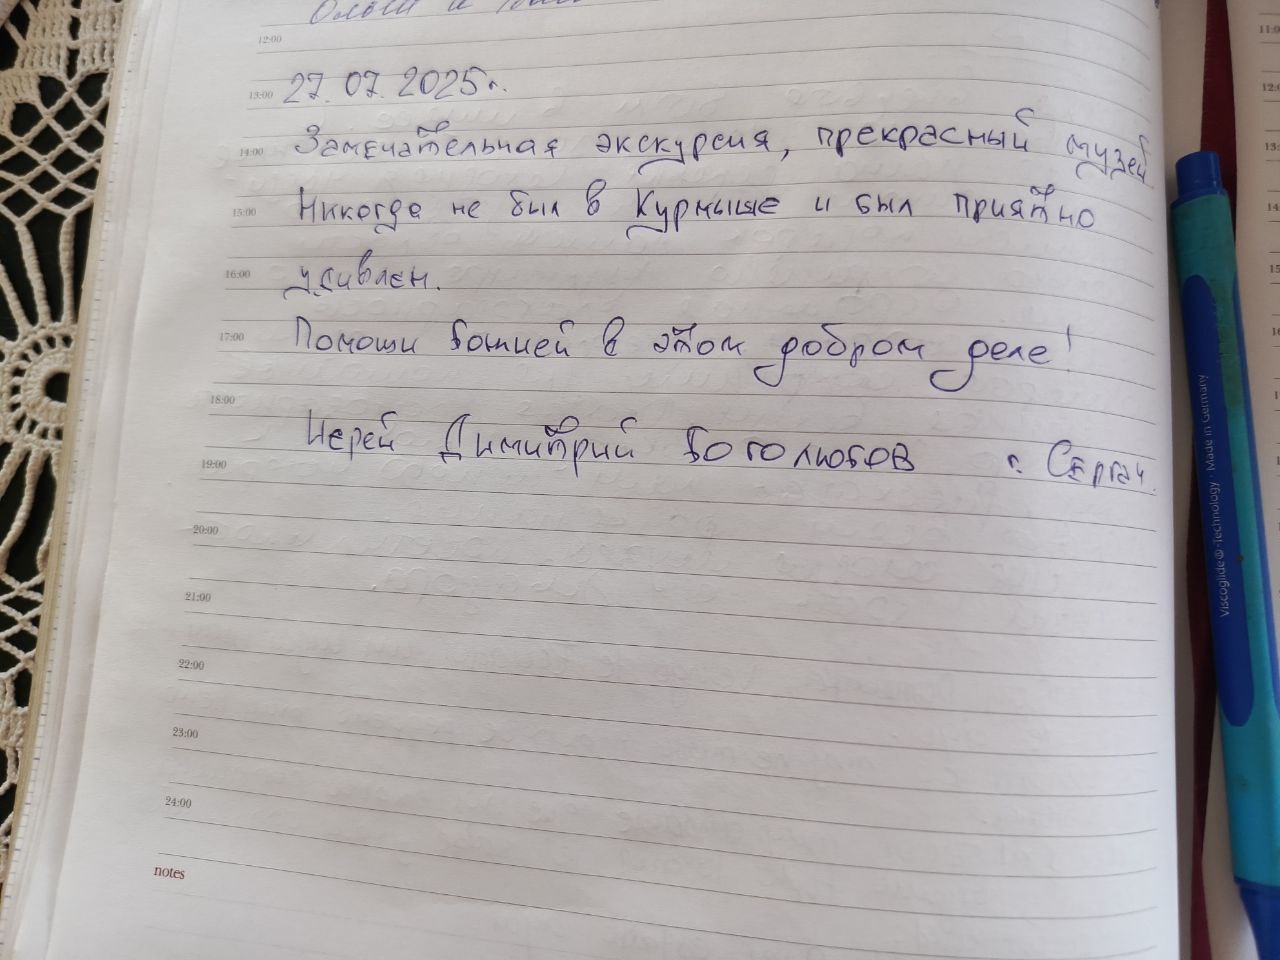 12:00
13:00 27.07.2025г.
14:00 Замечательная экскурсия, прекрасный музей
15:00 Никогда не был в Курмыше и был приятно
16:00 удивлен.
17:00 Помощи божией в этом добром деле!
18:00
Иерей Димитрий Боголюбов г. Сергач.
19:00
20:00
21:00
22:00
23:00
24:00
notes
11:00
12:00
13:
14
15
Viscoglide®-Technology · Made in Germany